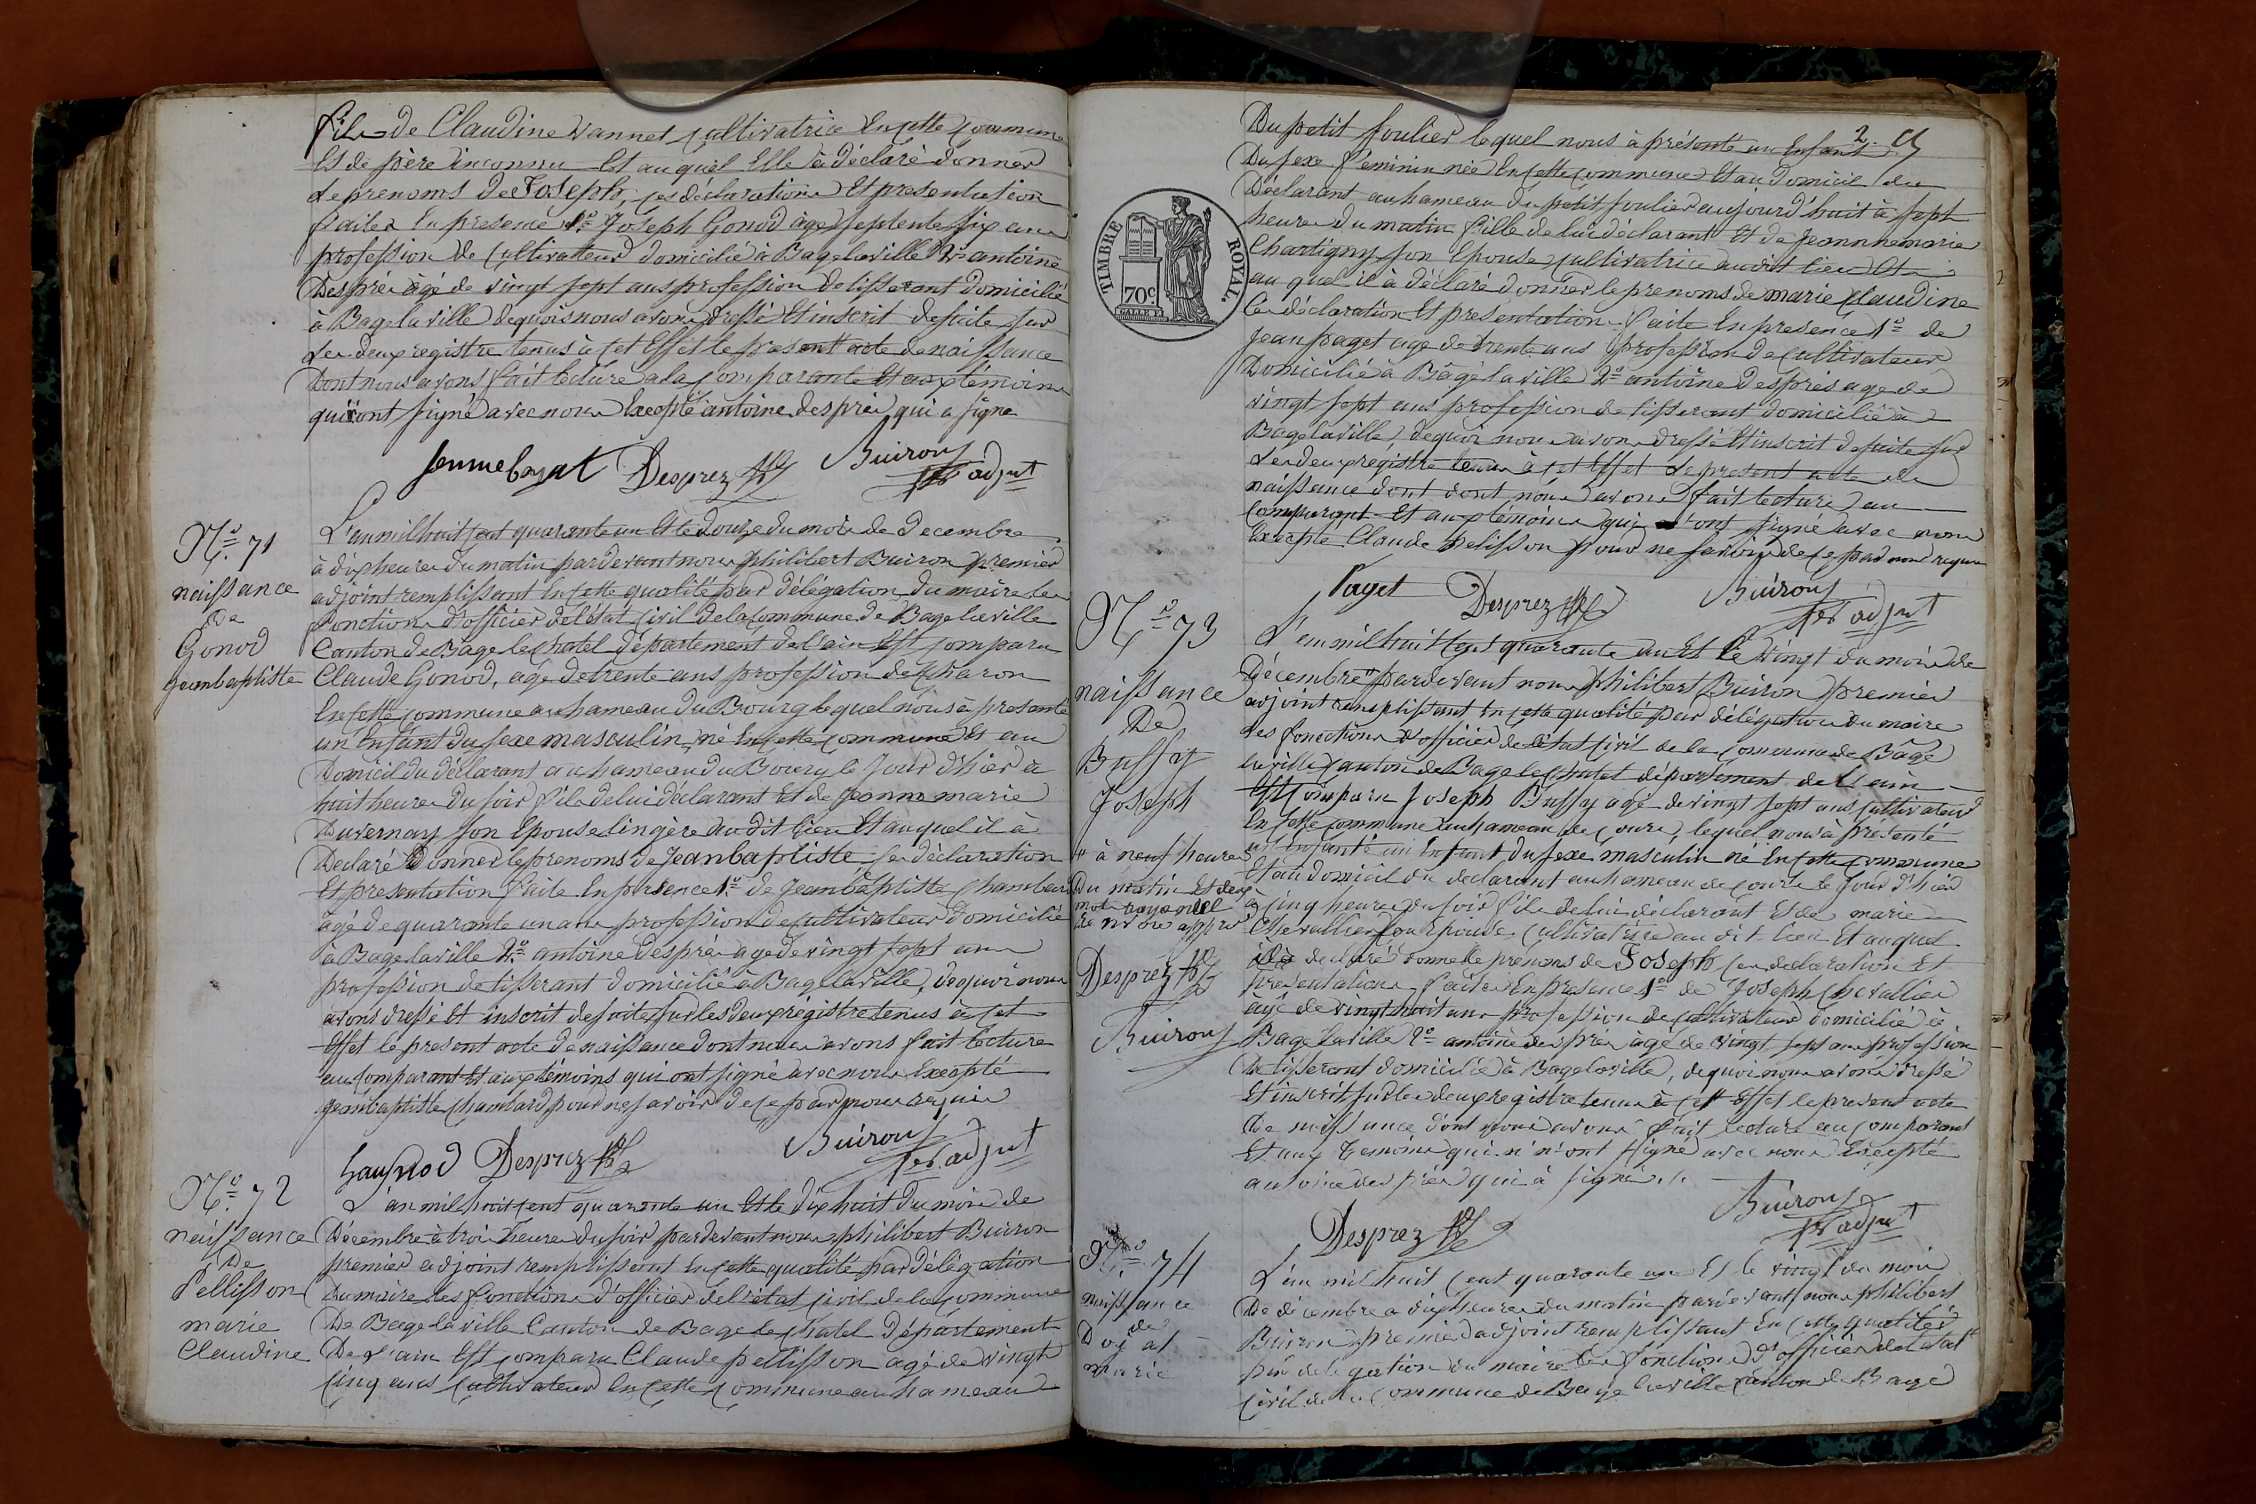 fils de Claudine Vannet cultivatrice en cette commune
et de père inconnu et au quel elle à déclaré donner
le prenoms de Joseph, ces déclarations et presentation
faites en presence 1º Joseph Gonod agé septente six ans
profession de cultivateur domicilié à Bagelaville 2º antoine
Després agé de vingt sept ans profession de tisserant domicilié
à Bagelaville dequois nous avons dressé et inscrit desuite sur
les deux registre tenus à cet effet le present acte de naissance
dont nous avons fait lecture a la comparante et aux témoins
qui ont signé avec nous excepté antoine després qui a signe
Desprez Buiron
1er adjnt
Nº 71
naissance
de
Gonod
jeanbaptiste
L'an mil huit cent quarante un et le douze du mois de Decembre
à dix heures du matin pardevant nous philibert Buiron premier
adjoint remplissant en cette qualité par délégation du maire les
fonctions d'officier de l'état civil de la commune de Bagelaville
Canton de Bage le chatel département de l'ain est comparu
Claude Gonod, agé de trente ans profession de charon
en cette commune au hameau du Bourg lequel nous à presenté
un enfant du sexe masculin né en cette commune et au
Domicil du déclarant au hameau du Bourg le jour d'hier à
huit heures du soir fils de lui déclarant et de Jeanne marie
Duvernay son epouse lingère au dit lieu et au quel il à
Declaré donner le prenoms de Jeanbaptiste ces déclaration
et presentation faite en présence 1º de Jeanbaptiste Chambard
âgé de quarante un ans profession de cultivateur domicilié
à Bagelaville 2º antoine Després agé de vingt sept ans
profession de tisserant domicilié à Bagelaville, dequoi nous
avons dressé et inscrit desuite sur les deux régistre tenus à cet
effet le present acte de naissance dont nous avons fait lecture
au comparant et aux temoins qui ont signé avec nous excepté
jeanbaptiste chambard pour ne savoir de ce par nous requis
Gaugnod Desprez Buiron
1er adjnt
Nº 72
naissance
De
Pellisson
marie
Claudine
L'an mil huit cent quarante un et le dix huit du mois de
Décembre à trois heures du soir pardevant nous philibert Buiron
premier adjoint remplissant en cette qualité par délégation
du maire les fonctions d'officier de l'état civil de la commune
De Bage la ville Canton de Bage le chatel Département
De l'ain est comparu Claude pellisson agé de vingt
cinq ans cultivateur en cette commune au hameau
2
TIMBRE ROYAL.
70c
Du petit soulier lequel nous à présenté un enfant
Du sexe féminin née en cette commune et au domicil du
Déclarant au hameau du petit soulier aujourd'huit à sept
heures du matin fille de lui déclarant et de Jeanne marie
Chartigny son epouse cultivatrice audit lieu et
au quel il à déclaré donner le prenoms de marie claudine
Ces déclaration et présentation faite en presence 1º de
jean paget age de trente ans profession de cultivateur
Domicilié à Bâgé la ville 2º antoine Després age de
vingt sept ans profession de tisserant domicilié à
Bagelaville, dequoi nous avons dressé et inscrit desuite sur
les deux registre tenus à cet effet le present acte de
naissance dont dont nous avons fait lecture au
comparant et aux témoins qui ont signé avec nous
excepté Claude pelisson pour ne savoir de ce par nous requis
Paget Desprez Buiron
1er adjnt
Nº 73
naissance
De
Buffy
Joseph
L'an mil huit cent quarante un et le vingt du mois de
Décembre pardevant nous philibert Buiron premier
adjoint remplissant en cette qualité par délégation du maire
les fonctions d'officier de l'état civil de la commune de Bagé
la ville canton de Bage le chatel département de l'ain
Est comparu Joseph Buffy agé de vingt sept ans cultivateur
en cette commune au hameau de lequel nous à presenté
un enfant du sexe masculin né en cette commune
et au domicil du declarant au hameau de le jour d'hier
à cinq heures du soir fils de lui déclarant et de marie
Chevallier son epouse cultivatrice au dit lieu et auquel
il à declaré donner le prenoms de Joseph ces declaration et
présentation faites en présence 1º de Joseph Chevallier
âgé de vingt huit ans profession de cultivateur domicilié à
Bage la ville 2º antoine després agé de vingt sept ans profession
de tisserant domicilié à Bagelaville, dequoi nous avons dressé
et inscrit sur les deux registre tenus à cet effet le present acte
De naissance dont nous avons fait lecture au comparant
et aux temoins qui n'ont signé avec nous excepté
antoine després qui à signé
# à neuf heures
Du matin et deux
mots rayés nul
Desprez
Buiron
Desprez Buiron
1er adjnt
Nº 74
naissance
de
marie
L'an mil huit cent quarante un et le vingt du mois
De décembre a dix heures du matin pardevant nous philibert
Buiron premier adjoint remplissant en cette qualité
par délégation du maire les fonctions d'officier de l'état
civil de la commune de Bage la ville canton de Bage